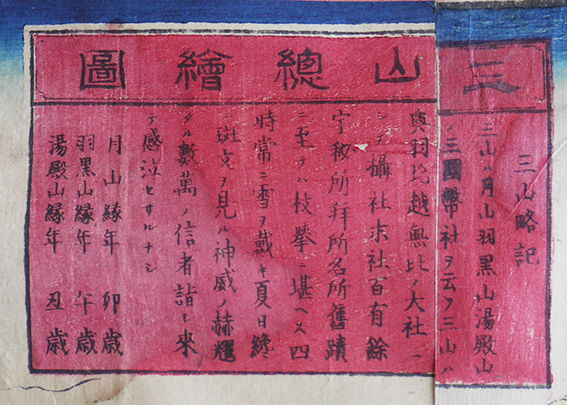 三山總繪圖
三山略記
三山ハ月山羽黒山湯殿山
ノ三國幣社ヲ云フ三山ハ
奥羽越無比ノ大社ニ
シテ攝社末社百有餘
宇秘所拜所名所舊蹟
ニ至テハ枚擧ニ堪ヘス四
時常ニ雪ヲ戴キ夏日終
斑文ヲ見ル神威ノ赫耀
タル數萬ノ信者詣ヒ來
テ感泣セサルナシ
月山縁年 卯歳
羽黒山縁年 午歳
湯殿山縁年 丑歳